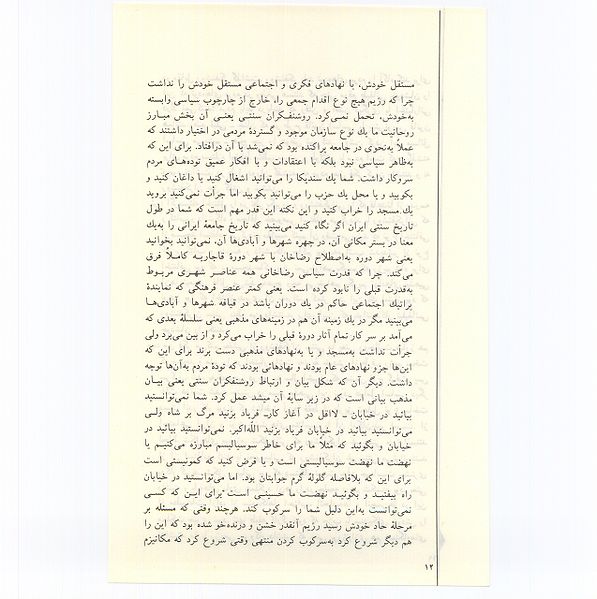 مستقل خودش، یا نهادهای فکری و اجتماعی مستقل خودش را نداشت
چرا که رژیم هیچ نوع اقدام جمعی را، خارج از چارچوب سیاسی وابسته
به‌خودش، تحمل نمـی‌کرد. روشنفکـران سنتـی یعنـی آن بخش مبـارز
روحانیت ما یك نوع سازمان موجود و گستردهٔ مردمی در اختیار داشتند که
عملاً به‌نحوی در جامعه پراکنده بود که نمی‌شد با آن درافتاد. برای این که
به‌ظاهر سیاسی نبود بلکه با اعتقادات و با افکار عمیق توده‌های مردم
سروکار داشت. شما یك سندیکا را می‌توانید اشغال کنید یا داغان کنید و
بکوبید و یا محل یك حزب را می‌توانید بکوبید اما جرأت نمی‌کنید بروید
یك مسجد را خراب کنید و این نکته این قدر مهم است که شما در طول
تاریخ سنتی ایران اگر نگاه کنید می‌بینید که تاریخ جامعهٔ ایرانی را به‌یك
معنا در بستر مکانی آن، در چهره شهرها و آبادی‌ها آن، نمی‌توانید بخوانید
یعنی شهر دوره به‌اصطلاح رضاخان با شهر دورهٔ قاجاریـه کامـلاً فرق
می‌کند. چرا که قدرت سیاسی رضاخانی همه عناصـر شهـری مربـوط
به‌قدرت قبلی را نابود کرده است. یعنی کمتر عنصر فرهنگی که نمایندهٔ
پراتیك اجتماعی حاکم در یك دوران باشد در قیافه شهرها و آبادی‌هـا
می‌بینید مگر در یك زمینه آن هم در زمینه‌های مذهبی یعنی سلسلهٔ بعدی که
می‌آمد بر سر کار تمام آثار دورهٔ قبلی را خراب می‌کرد و از بین می‌برد ولی
جرأت نداشت به‌مسجد و یا به‌نهادهای مذهبی دست برند برای این که
این‌ها جزو نهادهای عام بودند و نهادهائی بودند که تودهٔ مردم به‌آن‌ها توجه
داشت. دیگر آن که شکل بیان و ارتباط روشنفکران سنتی یعنی بیـان
مذهب بیانی است که در زیر سایهٔ آن میشد عمل کرد. شما نمی‌توانستید
بیائید در خیابان ــ لااقل در آغاز کارـ فریاد بزنید مرگ بر شاه ولـی
می‌توانستید بیائید در خیابان فریاد بزنید الله‌اکبر. نمی‌توانستید بیائید در
خیابان و بگوئید که مثلاً ما برای خاطر سوسیالیسم مبارزه می‌کنیـم یا
نهضت ما نهضت سوسیالیستی است و یا فرض کنید که کمونیستی است
برای این که بلافاصله گلولهٔ گرم جوابتان بود. اما می‌توانستید در خیابان
راه بیفتیـد و بگوئیـد نهضـت ما حسینـی اسـت برای ایـن که کسـی
نمی‌توانست به‌این دلیل شما را سرکوب کند. هرچند وقتی که مسئله بر
مرحلهٔ حاد خودش رسید رژیم آنقدر خشن و درنده‌خو شده بود که این را
هم دیگر شروع کرد به‌سرکوب کردن منتهی وقتی شروع کرد که مکانیزم
۱۲